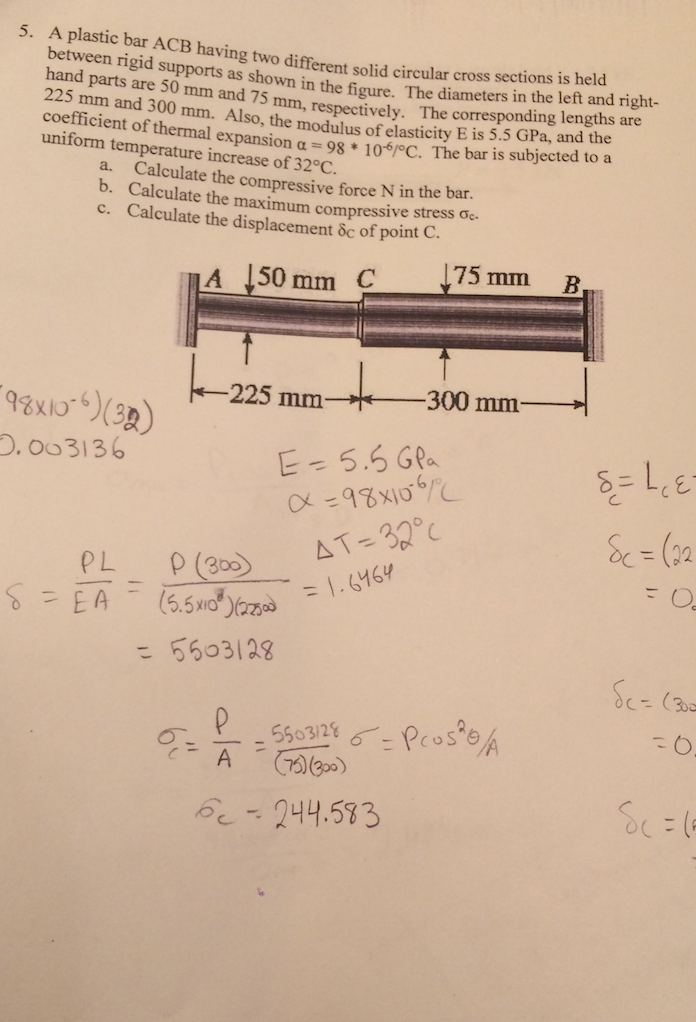 5. A plastic bar ACB having two different solid circular cross sections is held
between rigid supports as shown in the figure. The diameters in the left and right-
hand parts are 50 mm and 75 mm, respectively. The corresponding lengths are
225 mm and 300 mm. Also, the modulus of elasticity E is 5.5 GPa, and the
coefficient of thermal expansion α = 98 * 10⁻⁶/°C. The bar is subjected to a
uniform temperature increase of 32°C.
a. Calculate the compressive force N in the bar.
b. Calculate the maximum compressive stress σc.
c. Calculate the displacement δc of point C.
A 50 mm C 75 mm B
225 mm 300 mm
98x10⁻⁶)(32)
0.003136
E = 5.5 GPa
α = 98x10⁻⁶/°C
ΔT = 32°C
δ = PL/EA = P(300)/(5.5x10 )(22500) = 1.6464
= 5503128
σc = P/A = 5503128/(75)(300) σ = Pcos²θ/A
σc = 244.583
δc = Lcε
δc = (22
= 0.
δc = (300
= 0.
δc = (